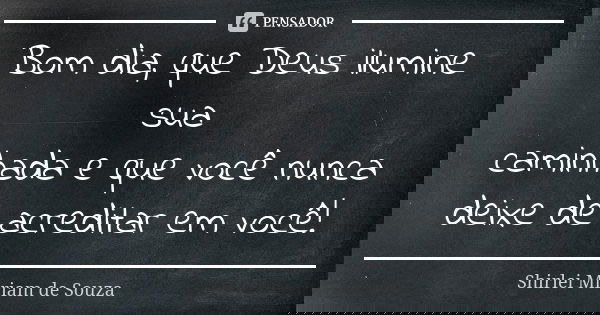 PENSADOR
Bom dia, que Deus ilumine
sua
caminhada e que você nunca
deixe de acreditar em você!
Shirlei Miriam de Souza